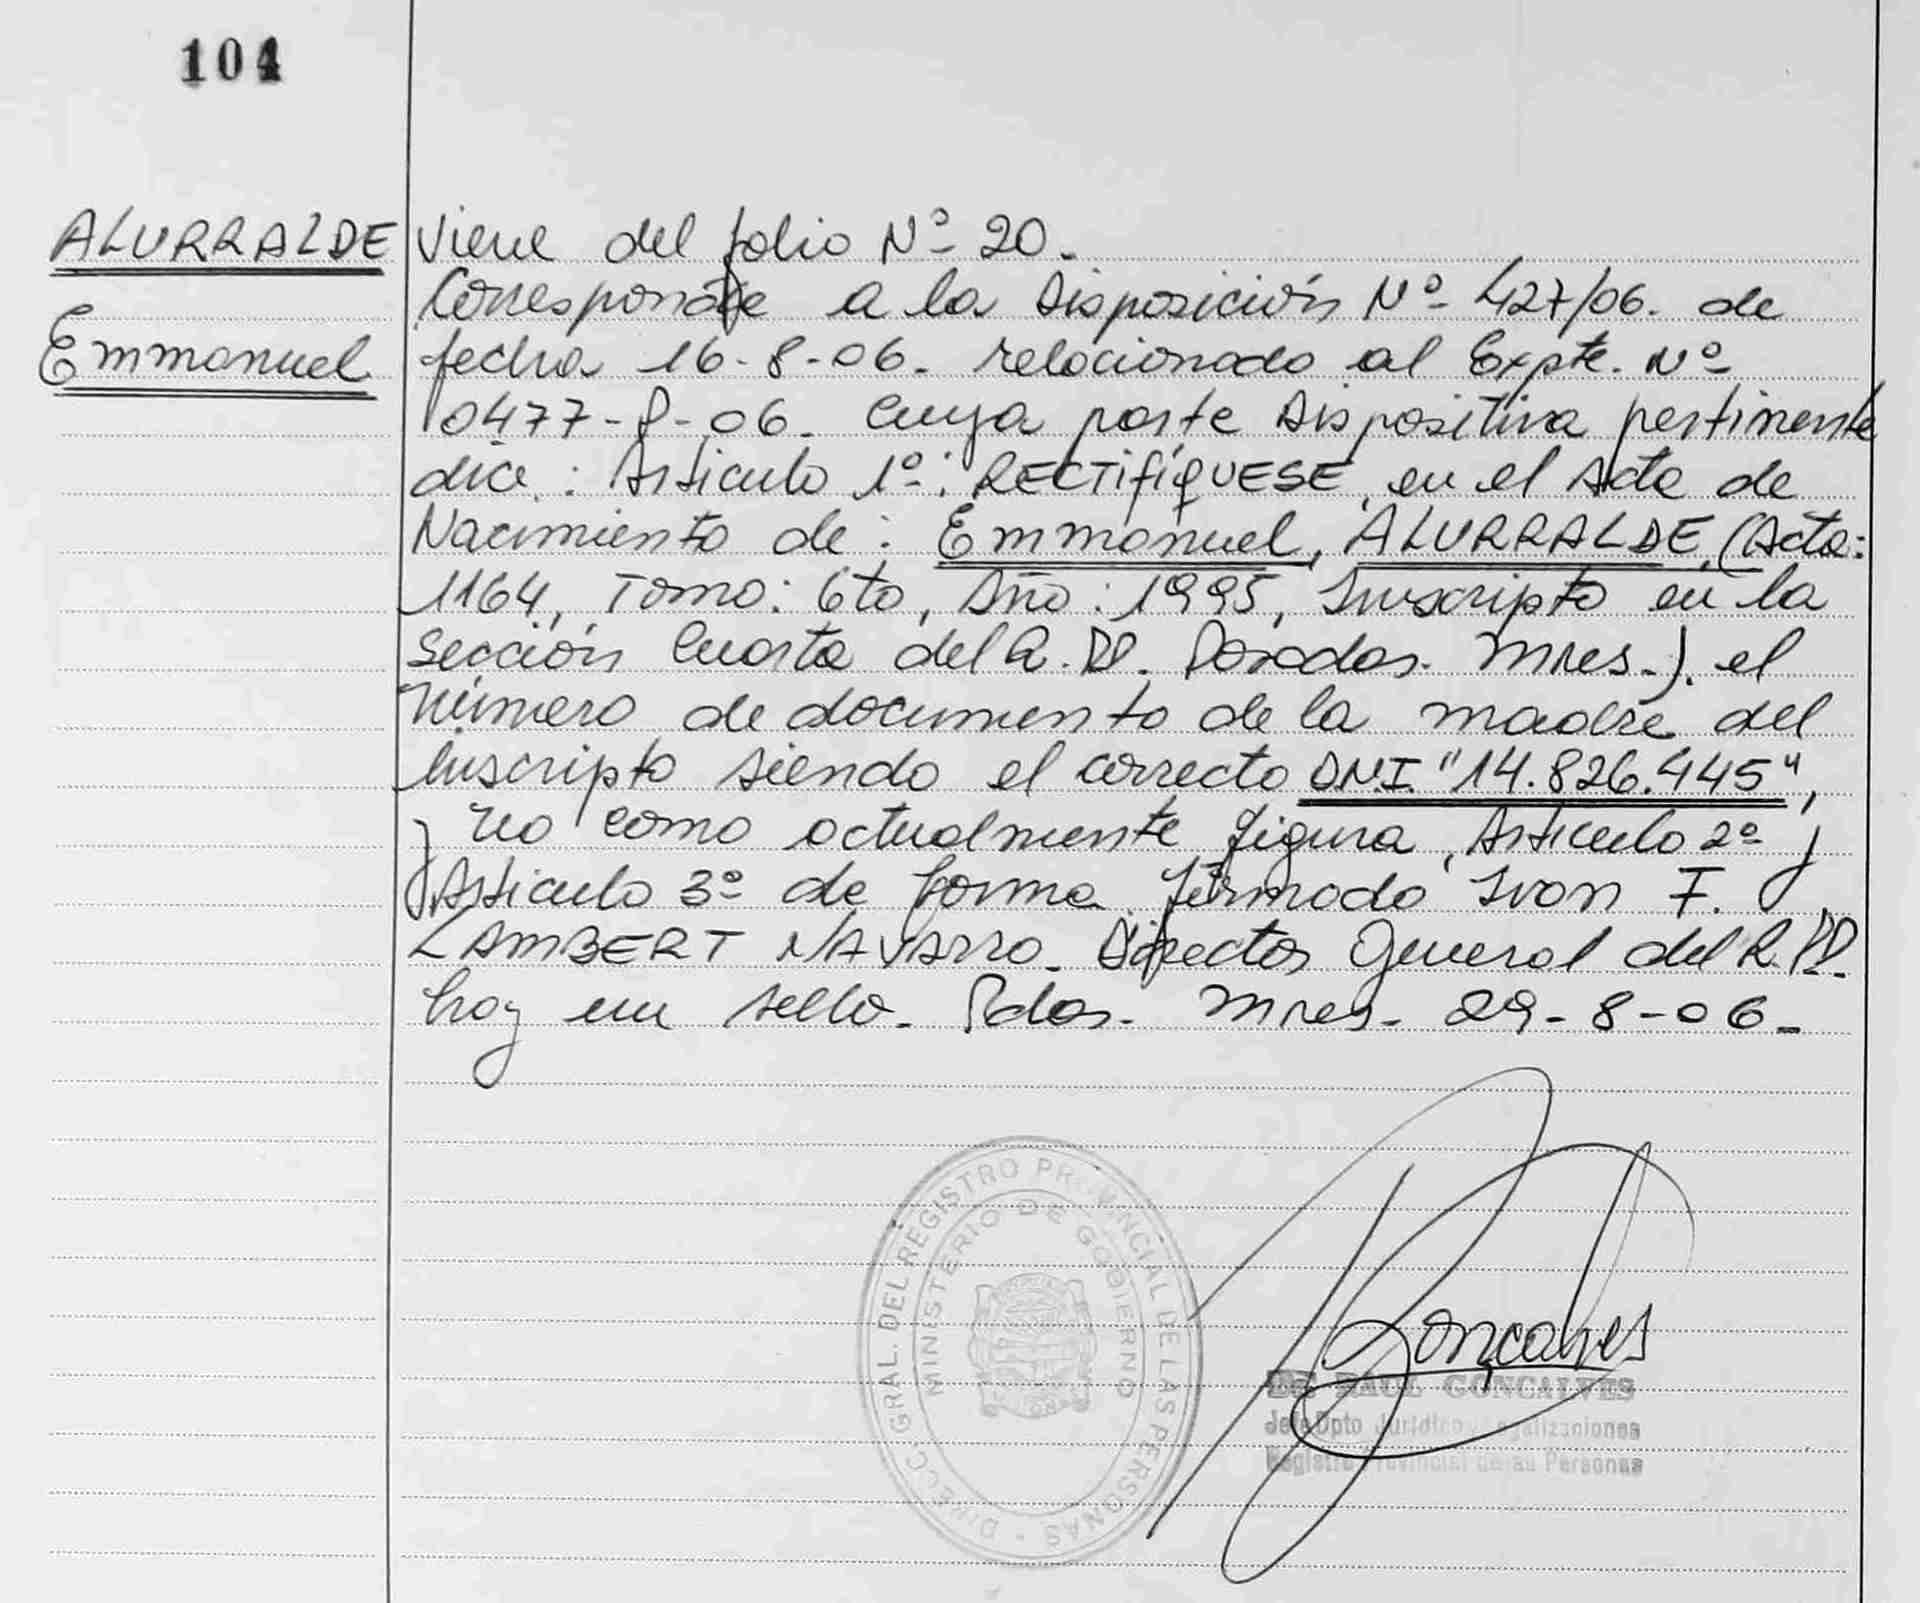 104
ALURRALDE
Emmanuel
Viene del folio Nº 20.
Corresponde a la Disposición Nº 427/06. de
fecha 16-8-06. relacionado al Expte. Nº
0477-P-06. Cuya parte Dispositiva pertinente
dice: Articulo 1º: RECTIFÍQUESE, en el Acta de
Nacimiento de: Emmanuel, ALURRALDE, (Acta:
1164, Tomo: 6to, Año: 1995, Inscripto en la
Sección Cuarta del R.PP. Posadas. Mnes.). el
Número de documento de la madre del
Inscripto siendo el correcto DN.I. "14.826.445",
y no como actualmente figura, Articulo 2º y
Articulo 3º de forma. firmado Ivan F.
LAMBERT NAVARRO. Director General del R.PP.
hay un sello. Pdas. Mnes. 29-8-06.
DIRECC. GRAL. DEL REGISTRO PROVINCIAL DE LAS PERSONAS
MINISTERIO DE GOBIERNO
Gonçalves
RAUL GONÇALVES
Jefe Dpto Jurídico y Legalizaciones
Registro Provincial de las Personas